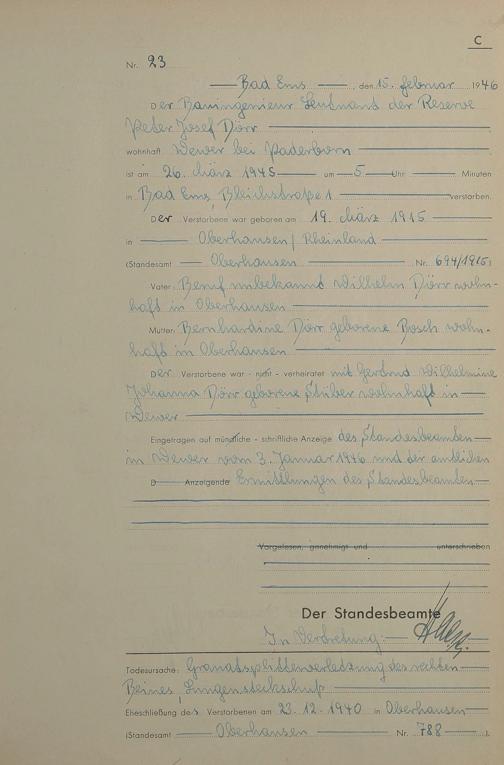 C
Nr. 23
Bad Ems, den 15. Februar 1946
Der Bauingenieur Leutnant der Reserve
Peter Josef Dörr
wohnhaft Wewer bei Paderborn
ist am 26. März 1945 um 5 Uhr Minuten
in Bad Ems, Bleichstraße 1 verstorben.
Der Verstorbene war geboren am 19. März 1915
in Oberhausen / Rheinland
(Standesamt Oberhausen Nr. 694/1915)
Vater: Beruf unbekannt Wilhelm Dörr wohn-
haft in Oberhausen
Mutter: Bernhardine Dörr geborene Bosch wohn-
haft in Oberhausen
Der Verstorbene war - nicht - verheiratet mit Gertrud Wilhelmine
Johanna Dörr geborene Stüber wohnhaft in
Wewer
Eingetragen auf mündliche - schriftliche Anzeige des Standesbeamten
in Wewer vom 3. Januar 1946 und der amtlichen
D Anzeigende Ermittlungen des Standesbeamten
Vorgelesen, genehmigt und unterschrieben
Der Standesbeamte
In Vertretung:
Todesursache: Granatsplitterverletzung des rechten
Beines, Lungensteckschuß
Eheschließung des Verstorbenen am 23.12.1940 in Oberhausen
(Standesamt Oberhausen Nr. 788 ).